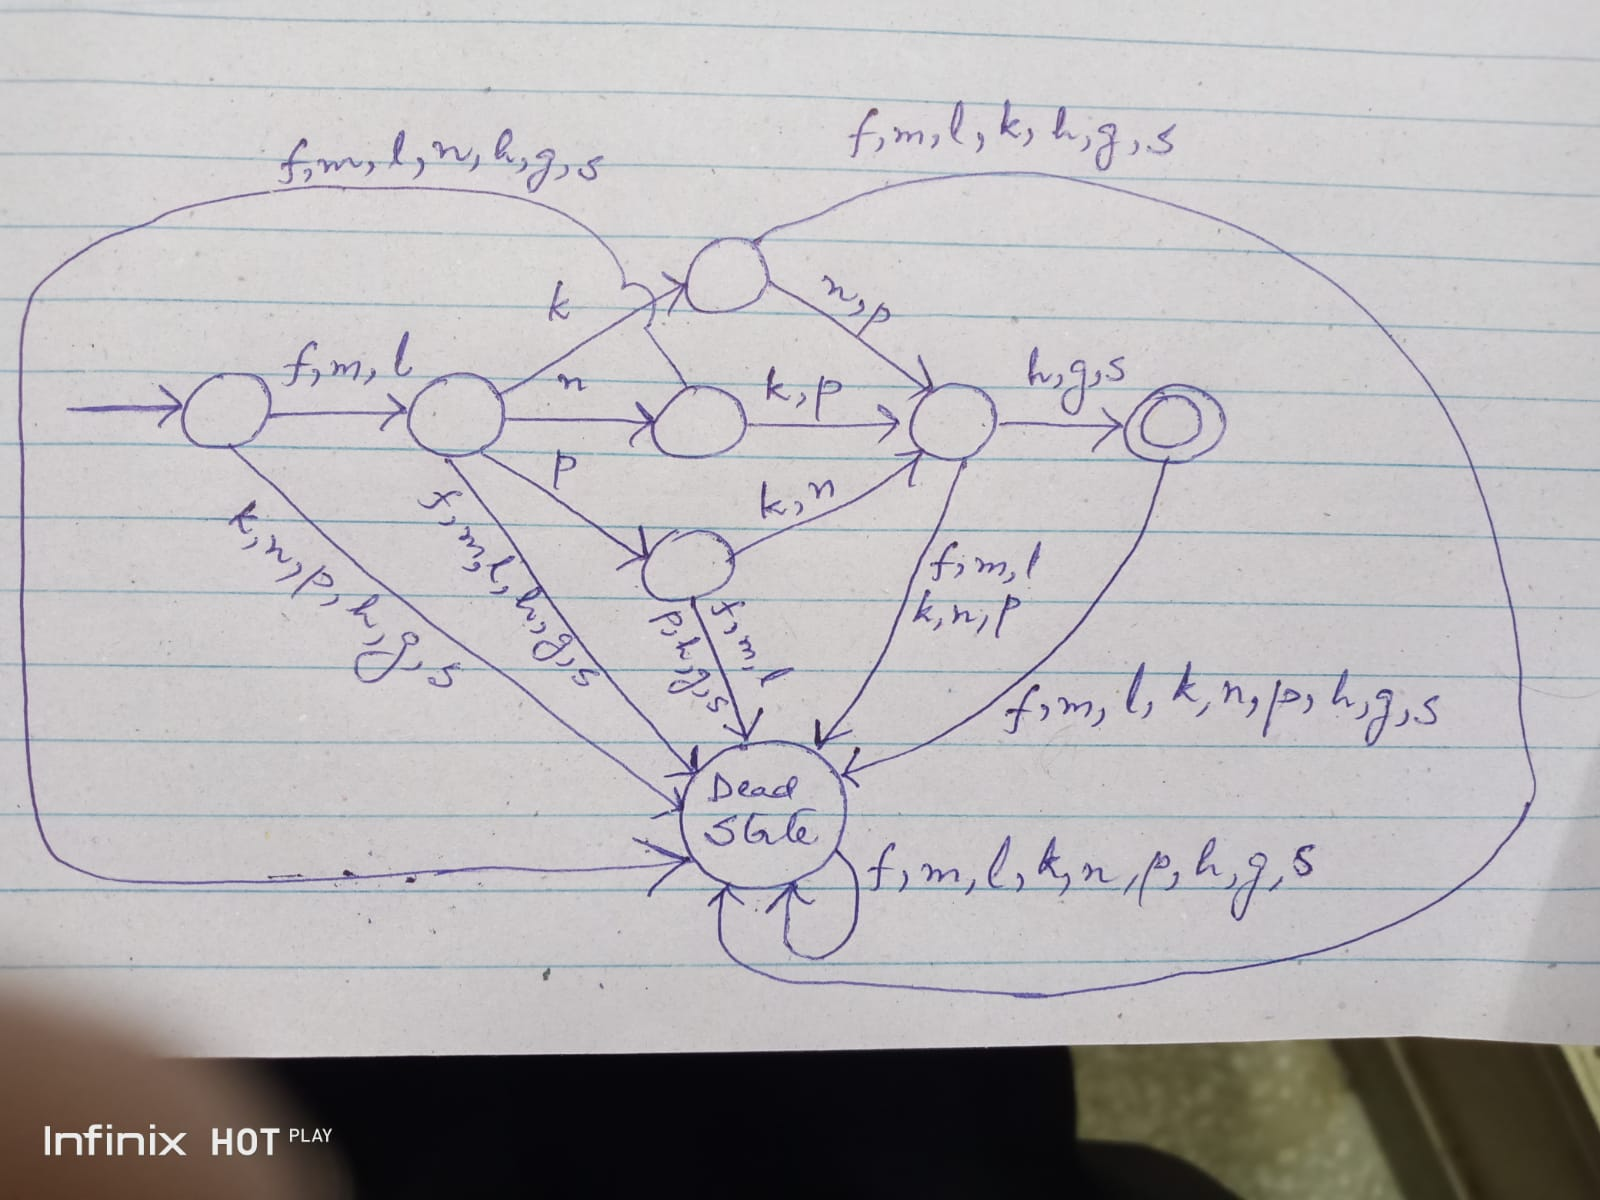 f,m,l,k,h,g,s
f,m,l,n,h,g,s
k
n,p
f,m,l
n
k,p
h,g,s
p
k,n
k,n,p,h,g,s
f,m,l,h,g,s
f,m,l
p,h,g,s
f,m,l
k,n,p
f,m,l,k,n,p,h,g,s
Dead
State
f,m,l,k,n,p,h,g,s
Infinix HOT PLAY